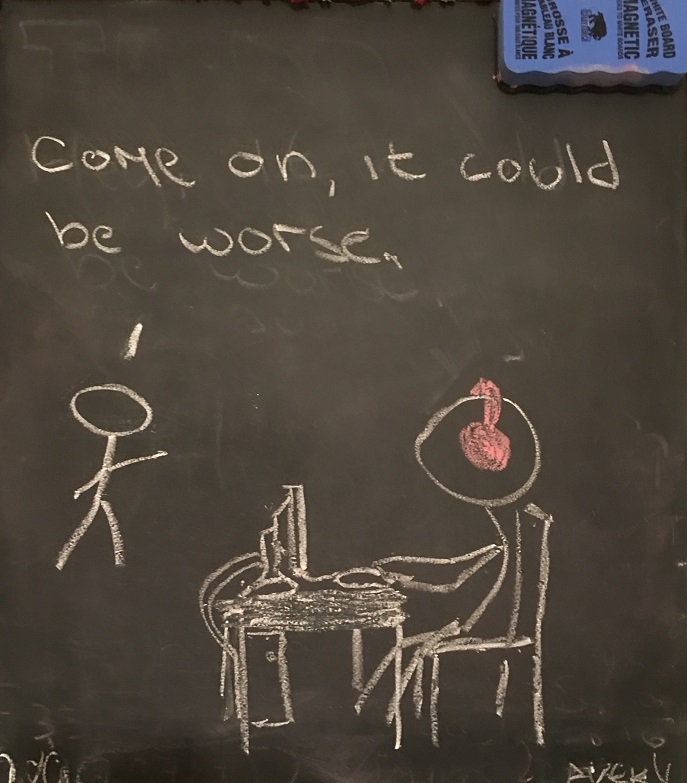 WHITE BOARD
ERASER
MAGNETIC
BROSSE À
TABLEAU BLANC
MAGNÉTIQUE
Come on, it could
be worse.